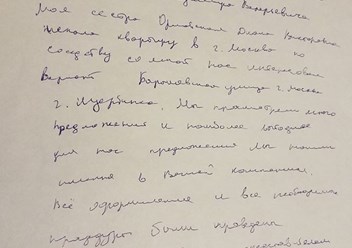 Валерьевича
Моя сестра Орловская Диана Викторовна
искала квартиру в г. Москва по
соседству со мной нас интересовал
Вариант Барышевская улица г. Москва
г. Щербинка. Мы просмотрели много
предложений и наиболее выгодное
для нас предложение мы нашли
именно в Вашей компании.
Всё оформление и все необходимые
процедуры были проведены